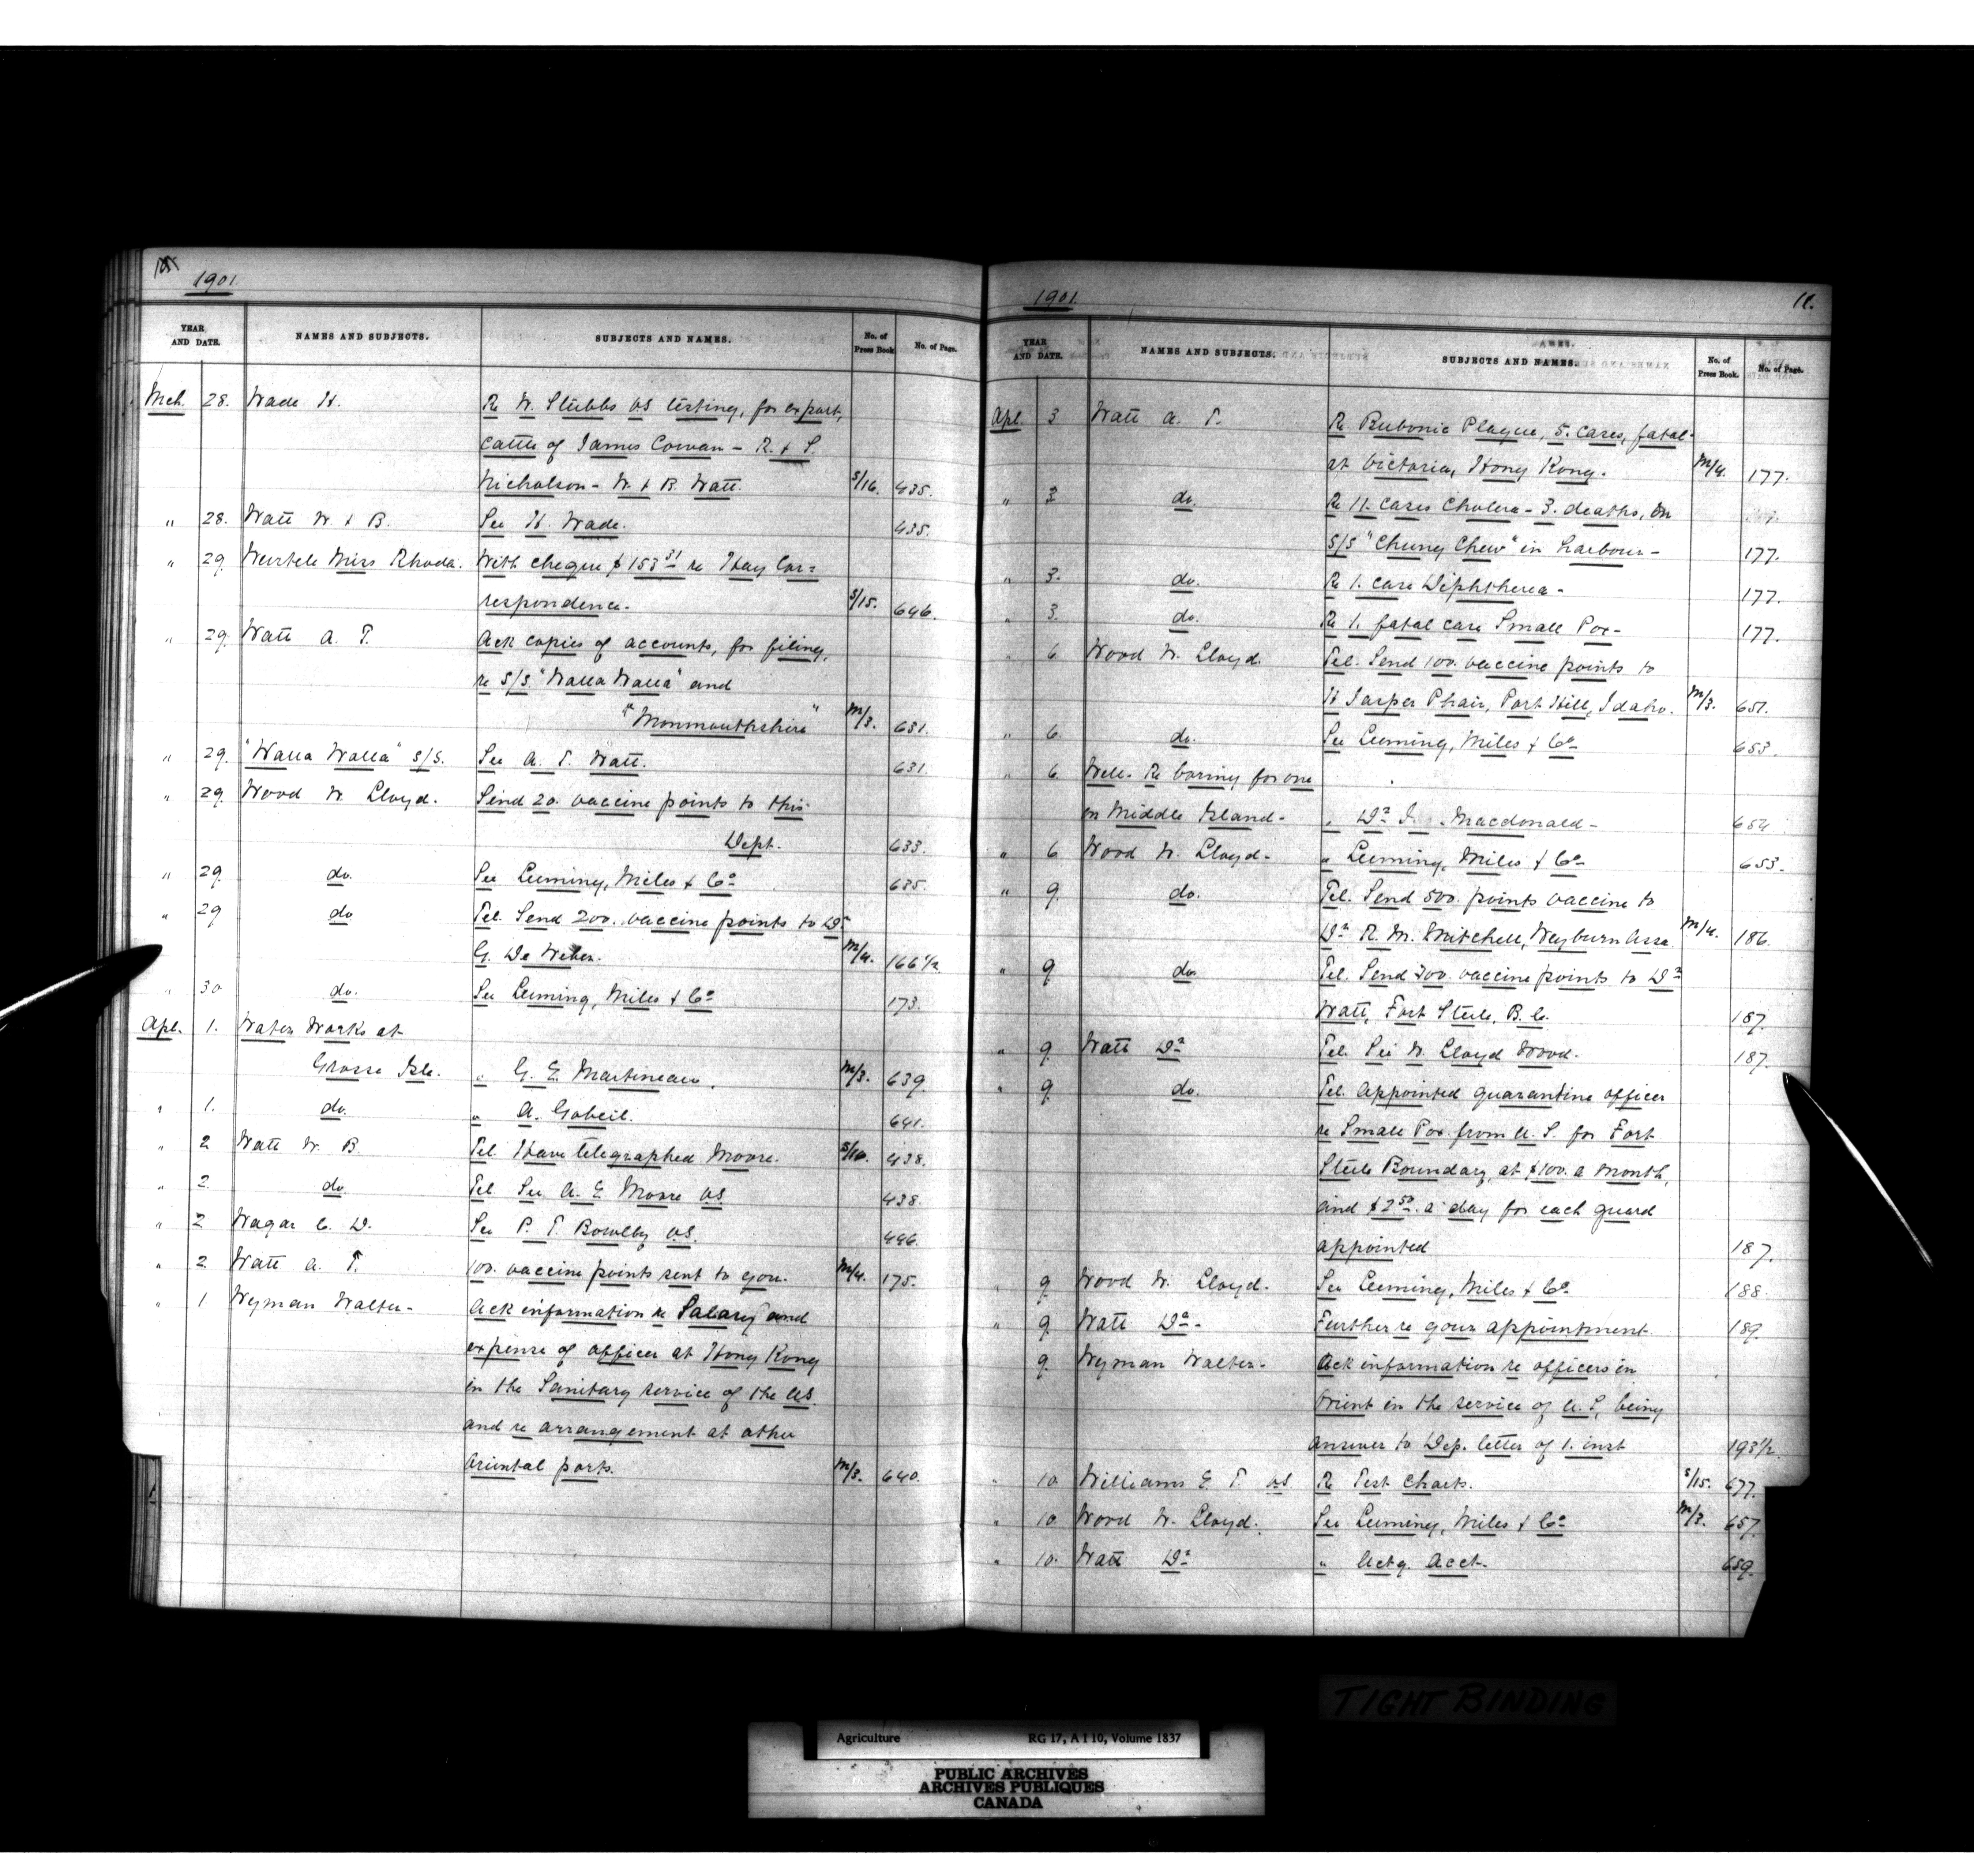 1901.
YEAR AND DATE. NAMES AND SUBJECTS. SUBJECTS AND NAMES. No. of Press Book. No. of Page.
Mch. 28. Wade H. Re W. Stubbs VS testing, for export,
cattle of James Cowan - R. & S.
Nicholson - W. & B. Watt. S/16. 435.
" 28. Watt W. & B. See H. Wade. 435.
" 29. Wurtele Miss Rhoda. With cheque $153 31 re Hay Cor=
respondence. S/15. 646.
" 29. Watt A. T. Ack copies of accounts, for filing,
re S/S "Walla Walla" and
"Monmouthshire" M/3. 631.
" 29. "Walla Walla" S/S. See A. T. Watt. 631.
" 29. Wood W. Lloyd. Send 20. vaccine points to this
Dept. 633.
" 29. do. See Leeming, Miles & Co 635.
" 29 do Tel. Send 200. vaccine points to Dr
G. De Weber. M/4. 166 1/2
" 30 do. See Leeming, Miles & Co 173.
Apl. 1. Water Works at
Grosse Isle. " G. E. Martineau. M/3. 639
" 1. do. " A. Gobeil. 641.
" 2 Watt W. B. Tel. Have telegraphed Moore. S/16. 438.
" 2. do. Tel. See A. E. Moore VS 438.
" 2 Wagar C. D. See P. T. Bowlby VS. 446.
" 2 Watt A. T. 100. vaccine points sent to you. M/4. 175.
" 1 Wyman Walter - Ack information re Salary and
expense of officer at Hong Kong
in the Sanitary service of the US.
and re arrangement at other
Oriental ports. M/3. 640.
1901. 11.
YEAR AND DATE. NAMES AND SUBJECTS. SUBJECTS AND NAMES. No. of Press Book. No. of Page.
Apl. 3 Watt A. T. Re Bubonic Plague, 5. cases, fatal
at Victoria, Hong Kong. M/4. 177.
" 3 do. Re 11. cases Cholera - 3. deaths, on
S/S "Chung Chew" in harbour - 177.
" 3. do. Re 1. case Diphtheria - 177.
" 3. do. Re 1. fatal case Small Pox - 177.
" 6 Wood W. Lloyd. Tel. Send 100. vaccine points to
H Jasper Phair, Port Hill, Idaho. M/3. 651.
" 6. do. See Leeming, Miles & Co 653.
" 6. Well. Re boring for one
on Middle Island - " Dr Macdonald - 654
" 6 Wood W. Lloyd - " Leeming, Miles & Co 653.
" 9. do. Tel. Send 500. points vaccine to
Dr R. M. Mitchell, Weyburn Assa. M/4. 186.
" 9 do. Tel. Send 200. vaccine points to Dr
Watt, Fort Steele, B. C. 187.
" 9. Watt Dr Tel. See W. Lloyd Wood. 187.
" 9. do. Tel. Appointed quarantine officer
re Small Pox from U. S. for Fort
Steele Boundary, at $100. a month,
and $2 50. a day for each guard
appointed 187.
" 9 Wood W. Lloyd. See Leeming, Miles & Co 188.
" 9. Watt Dr - Further re your appointment. 189.
9. Wyman Walter - Ack information re officers in
Orient in the service of U. S, being
answer to Dep. letter of 1. inst 193 1/2
" 10 Williams E. T. VS Re Test Charts. S/15. 677.
" 10 Wood W. Lloyd. See Leeming, Miles & Co M/3. 657.
" 10. Watt Dr " Actg. Acct. 659.
TIGHT BINDING
Agriculture RG 17, A I 10, Volume 1837
PUBLIC ARCHIVES
ARCHIVES PUBLIQUES
CANADA